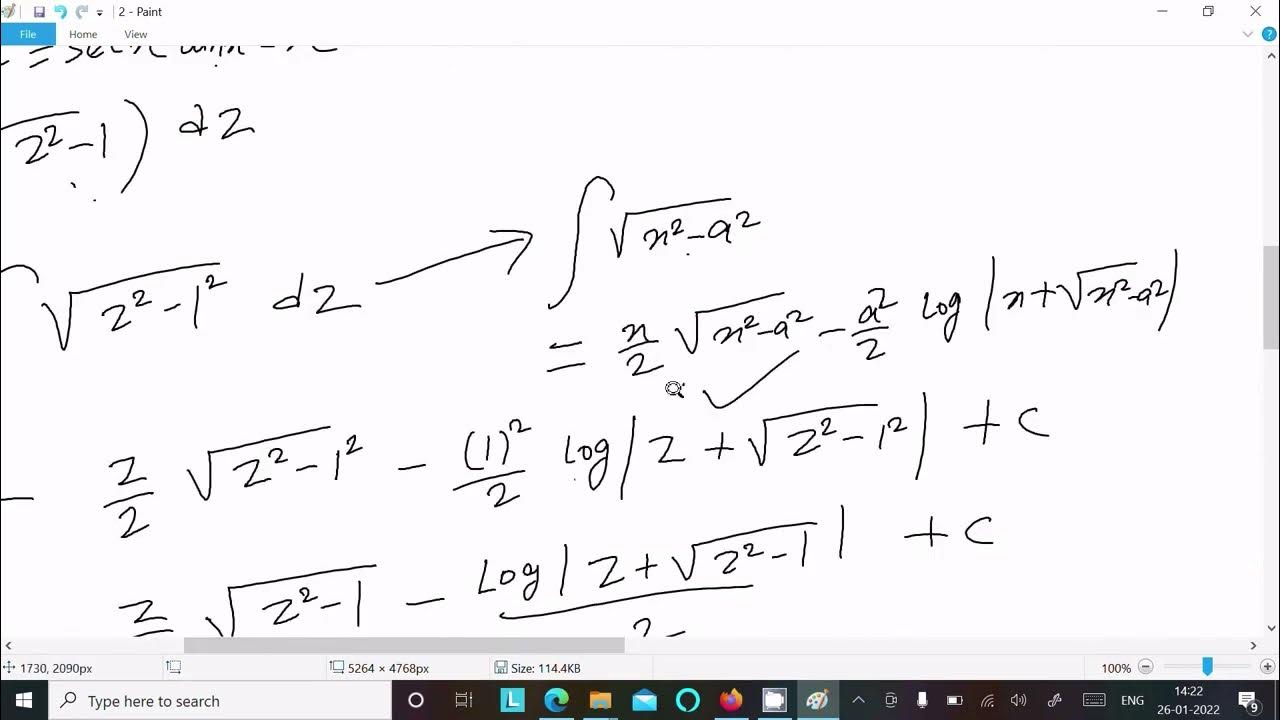 2 - Paint
File Home View
√z²-1) dz
∫√x²-a²
√z²-1² dz
= x/2 √x²-a² - a²/2 log|x+√x²-a²|
z/2 √z²-1² - (1)²/2 log|z+√z²-1²| + c
z √z²-1 - log|z+√z²-1| + c
2
1730, 2090px 5264 × 4768px Size: 114.4KB 100%
Type here to search ENG 14:22
26-01-2022 9